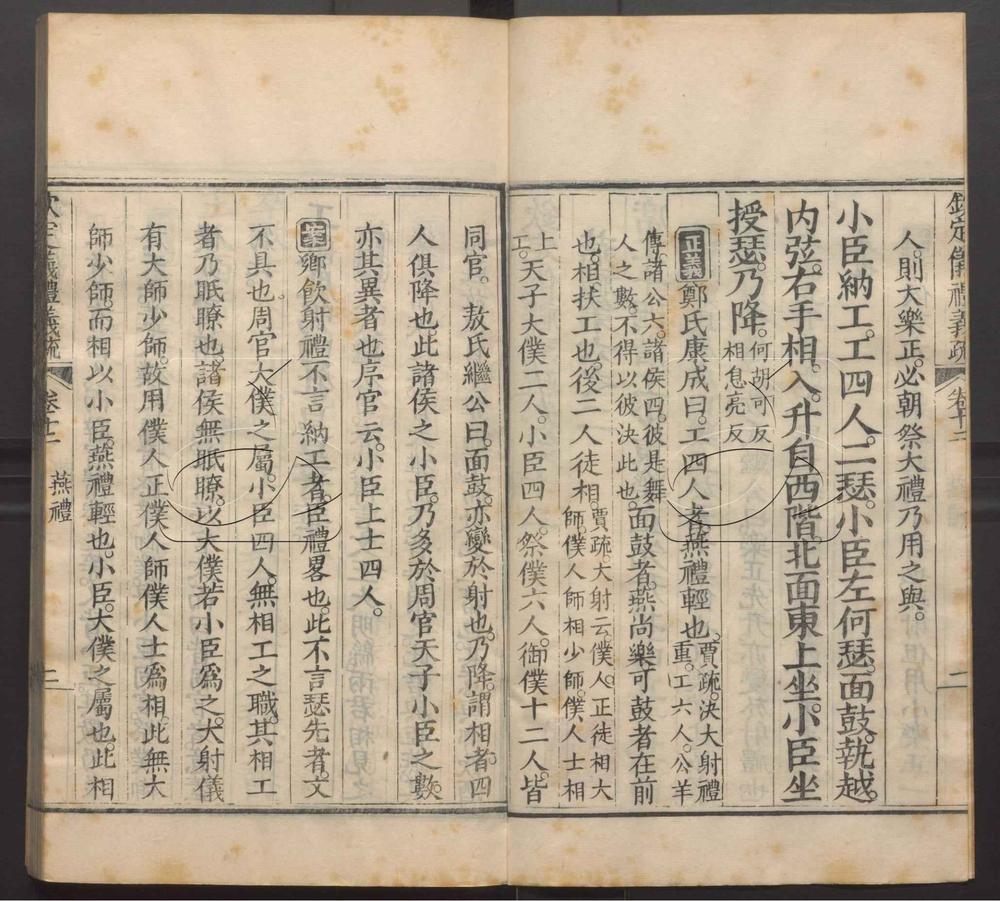 欽定儀禮義疏 卷十二 一
人。則大樂正。必朝祭大禮乃用之與。
小臣納工。工四人。二瑟。小臣左何瑟。面鼓。執越。
內弦。右手相。入。升自西階。北面東上坐。小臣坐
授瑟。乃降。何胡可反
相息亮反
正義鄭氏康成曰。工四人者。燕禮輕也。賈疏。決大射禮
重。工六人。公羊
傳諸公六。諸侯四。彼是舞
人之數。不得以彼決此也。面鼓者。燕尚樂。可鼓者在前
也。相扶工也。後二人徒相。賈疏。大射云。僕人正徒相大
師。僕人師相少師。僕人士相
上
工。天子大僕二人。小臣四人。祭僕六人。御僕十二人。皆
同官。 敖氏繼公曰。面鼓。亦變於射也。乃降。謂相者。四
人俱降也。此諸侯之小臣。乃多於周官天子小臣之數。
亦其異者也。序官云。小臣上士四人。
案鄉飲射禮不言納工者。臣禮畧也。此不言瑟先者。文
不具也。周官大僕之屬。小臣四人。無相工之職。其相工
者乃眂瞭也。諸侯無眂瞭。以大僕若小臣爲之。大射儀
有大師少師。故用僕人正僕人師僕人士爲相。此無大
師少師。而相以小臣。燕禮輕也。小臣。大僕之屬也。此相
欽定儀禮義疏 卷十二 燕禮 二